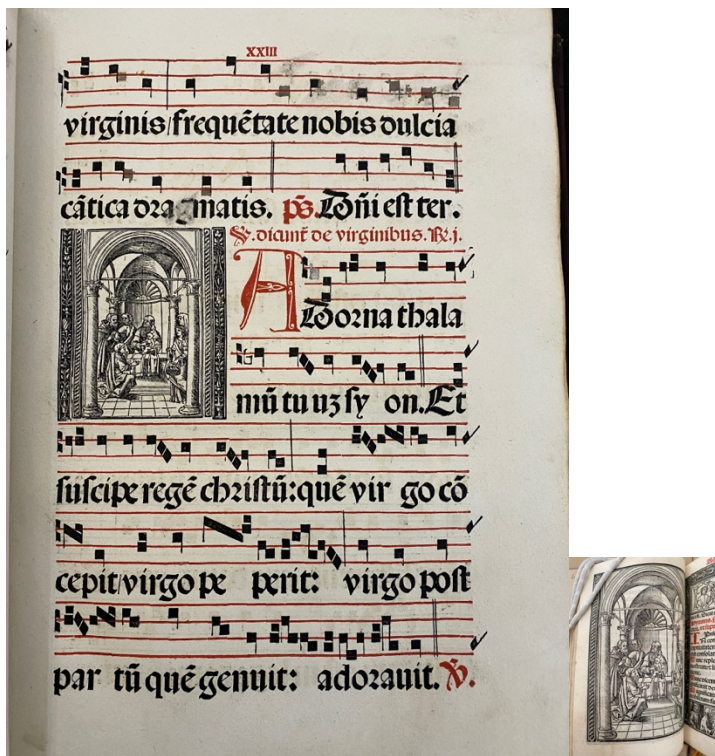 XXIII
virginis/frequẽtate nobis dulcia
cãtica dragmatis. p̄s. Dñi est ter.
V. dicunt̃ de virginibus. R. j.
Adorna thala
mũ tuuʒ sy on. Et
suscipe regẽ christũ: quẽ vir go cõ
cepit/virgo pe perit: virgo post
par tũ quẽ genuit: adorauit. V.